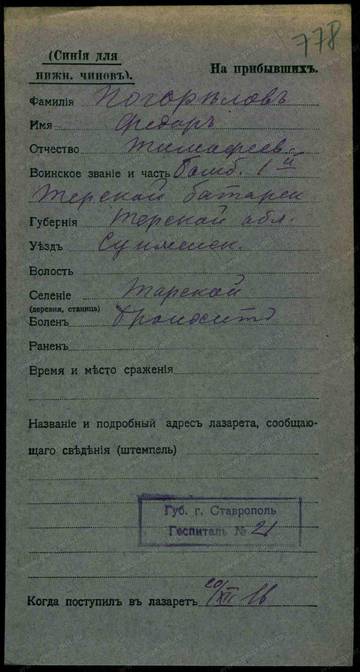 778
(Синія для
нижн. чиновъ).
На прибывшихъ.
Фамилія Погорѣловъ
Имя Федоръ
Отчество Тимофеев.
Воинское званіе и часть бомб. 1й
Терской батареи
Губернія Терской обл.
Уѣздъ Сунженск.
Волость
Селеніе Тарской
(деревня, станица)
Боленъ Бронхитъ
Раненъ
Время и мѣсто сраженія
Названіе и подробный адресъ лазарета, сообщаю-
щаго свѣдѣнія (штемпель)
Губ. г. Ставрополь
Госпиталь № 21
Когда поступилъ въ лазаретъ 20/XII 16